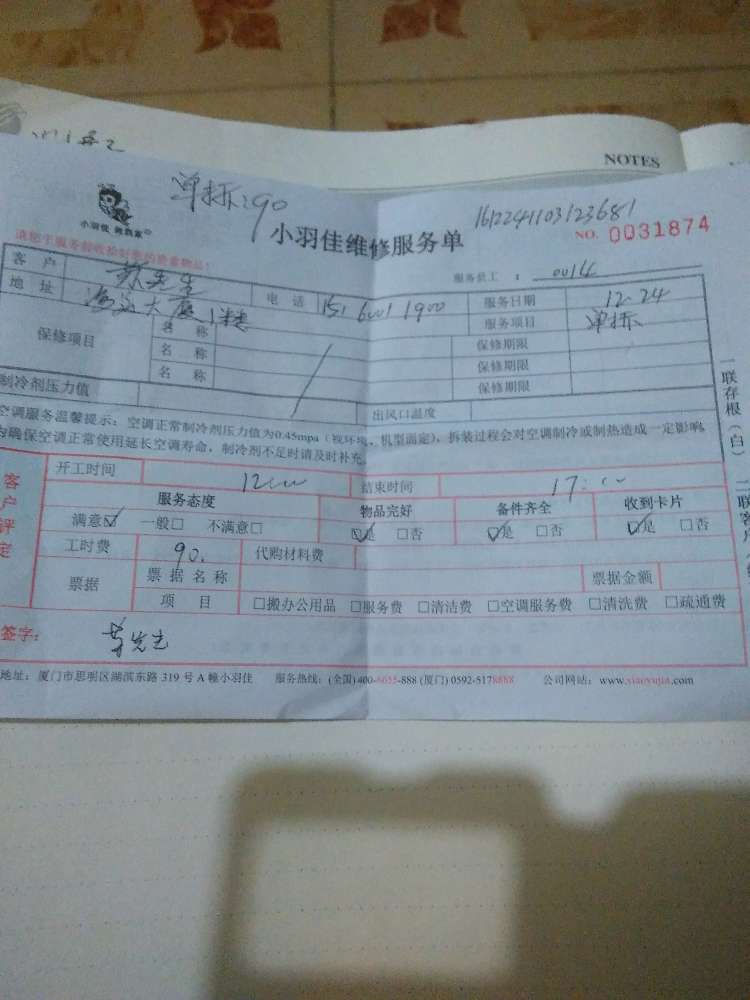 NOTES
单拆:90
1612241103123681
小羽佳 微凯家
小羽佳维修服务单 NO. 0031874
请您于服务验收检好您的贵重物品!
服务员工 : 0014
客 户 苏先生 电 话 151 6001 1900 服务日期 12-24
地 址 1楼 服务项目 单拆
保修项目 名 称 保修期限
名 称 保修期限
名 称 保修期限
制冷剂压力值 出风口温度
空调服务温馨提示:空调正常制冷剂压力值为0.45mpa(视环境、机型而定),拆装过程会对空调制冷或制热造成一定影响,
为确保空调正常使用延长空调寿命,制冷剂不足时请及时补充。
一联存根(白) 二联客户
客户评定
开工时间 12:00 结束时间 17:00
服务态度 物品完好 备件齐全 收到卡片
满意☑ 一般□ 不满意□ ☑是 □否 ☑是 □否 ☑是 □否
工时费 90. 代购材料费
票据 票据名称 票据金额
项 目 □搬办公用品 □服务费 □清洁费 □空调服务费 □清洗费 □疏通费
签字: 苏先生
地址:厦门市思明区湖滨东路 319 号 A 幢小羽佳 服务热线:(全国)400-6055-888 (厦门) 0592-5178888 公司网站:www.xiaoyujia.com